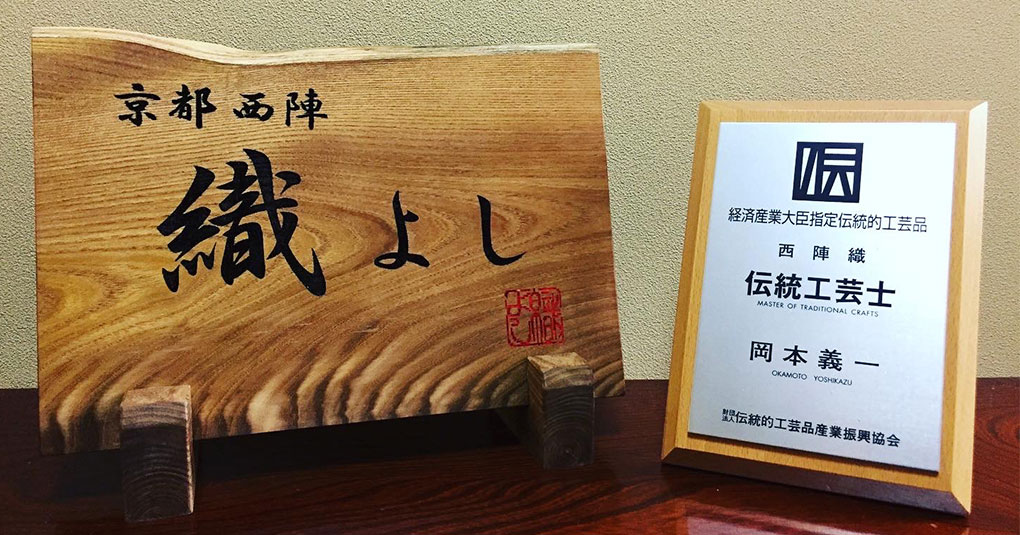 京都 西陣
織よし
織よし
伝
経済産業大臣指定伝統的工芸品
西陣織
伝統工芸士
MASTER OF TRADITIONAL CRAFTS
岡本義一
OKAMOTO YOSHIKAZU
財団法人伝統的工芸品産業振興協会